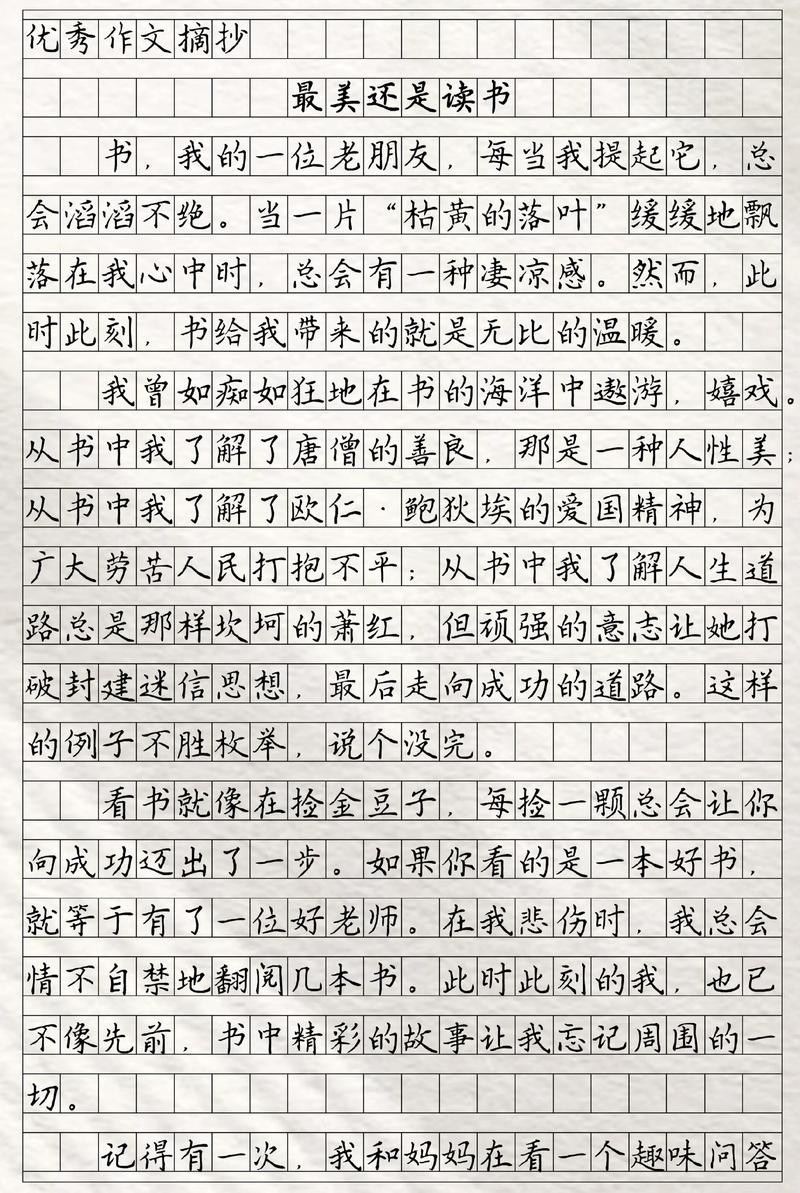 优秀作文摘抄
最美还是读书
书，我的一位老朋友，每当我提起它，总
会滔滔不绝。当一片“枯黄的落叶”缓缓地飘
落在我心中时，总会有一种凄凉感。然而，此
时此刻，书给我带来的就是无比的温暖。
我曾如痴如狂地在书的海洋中遨游，嬉戏。
从书中我了解了唐僧的善良，那是一种人性美；
从书中我了解了欧仁·鲍狄埃的爱国精神，为
广大劳苦人民打抱不平；从书中我了解人生道
路总是那样坎坷的萧红，但顽强的意志让她打
破封建迷信思想，最后走向成功的道路。这样
的例子不胜枚举，说个没完。
看书就像在捡金豆子，每捡一颗总会让你
向成功迈出了一步。如果你看的是一本好书，
就等于有了一位好老师。在我悲伤时，我总会
情不自禁地翻阅几本书。此时此刻的我，也已
不像先前，书中精彩的故事让我忘记周围的一
切。
记得有一次，我和妈妈在看一个趣味问答